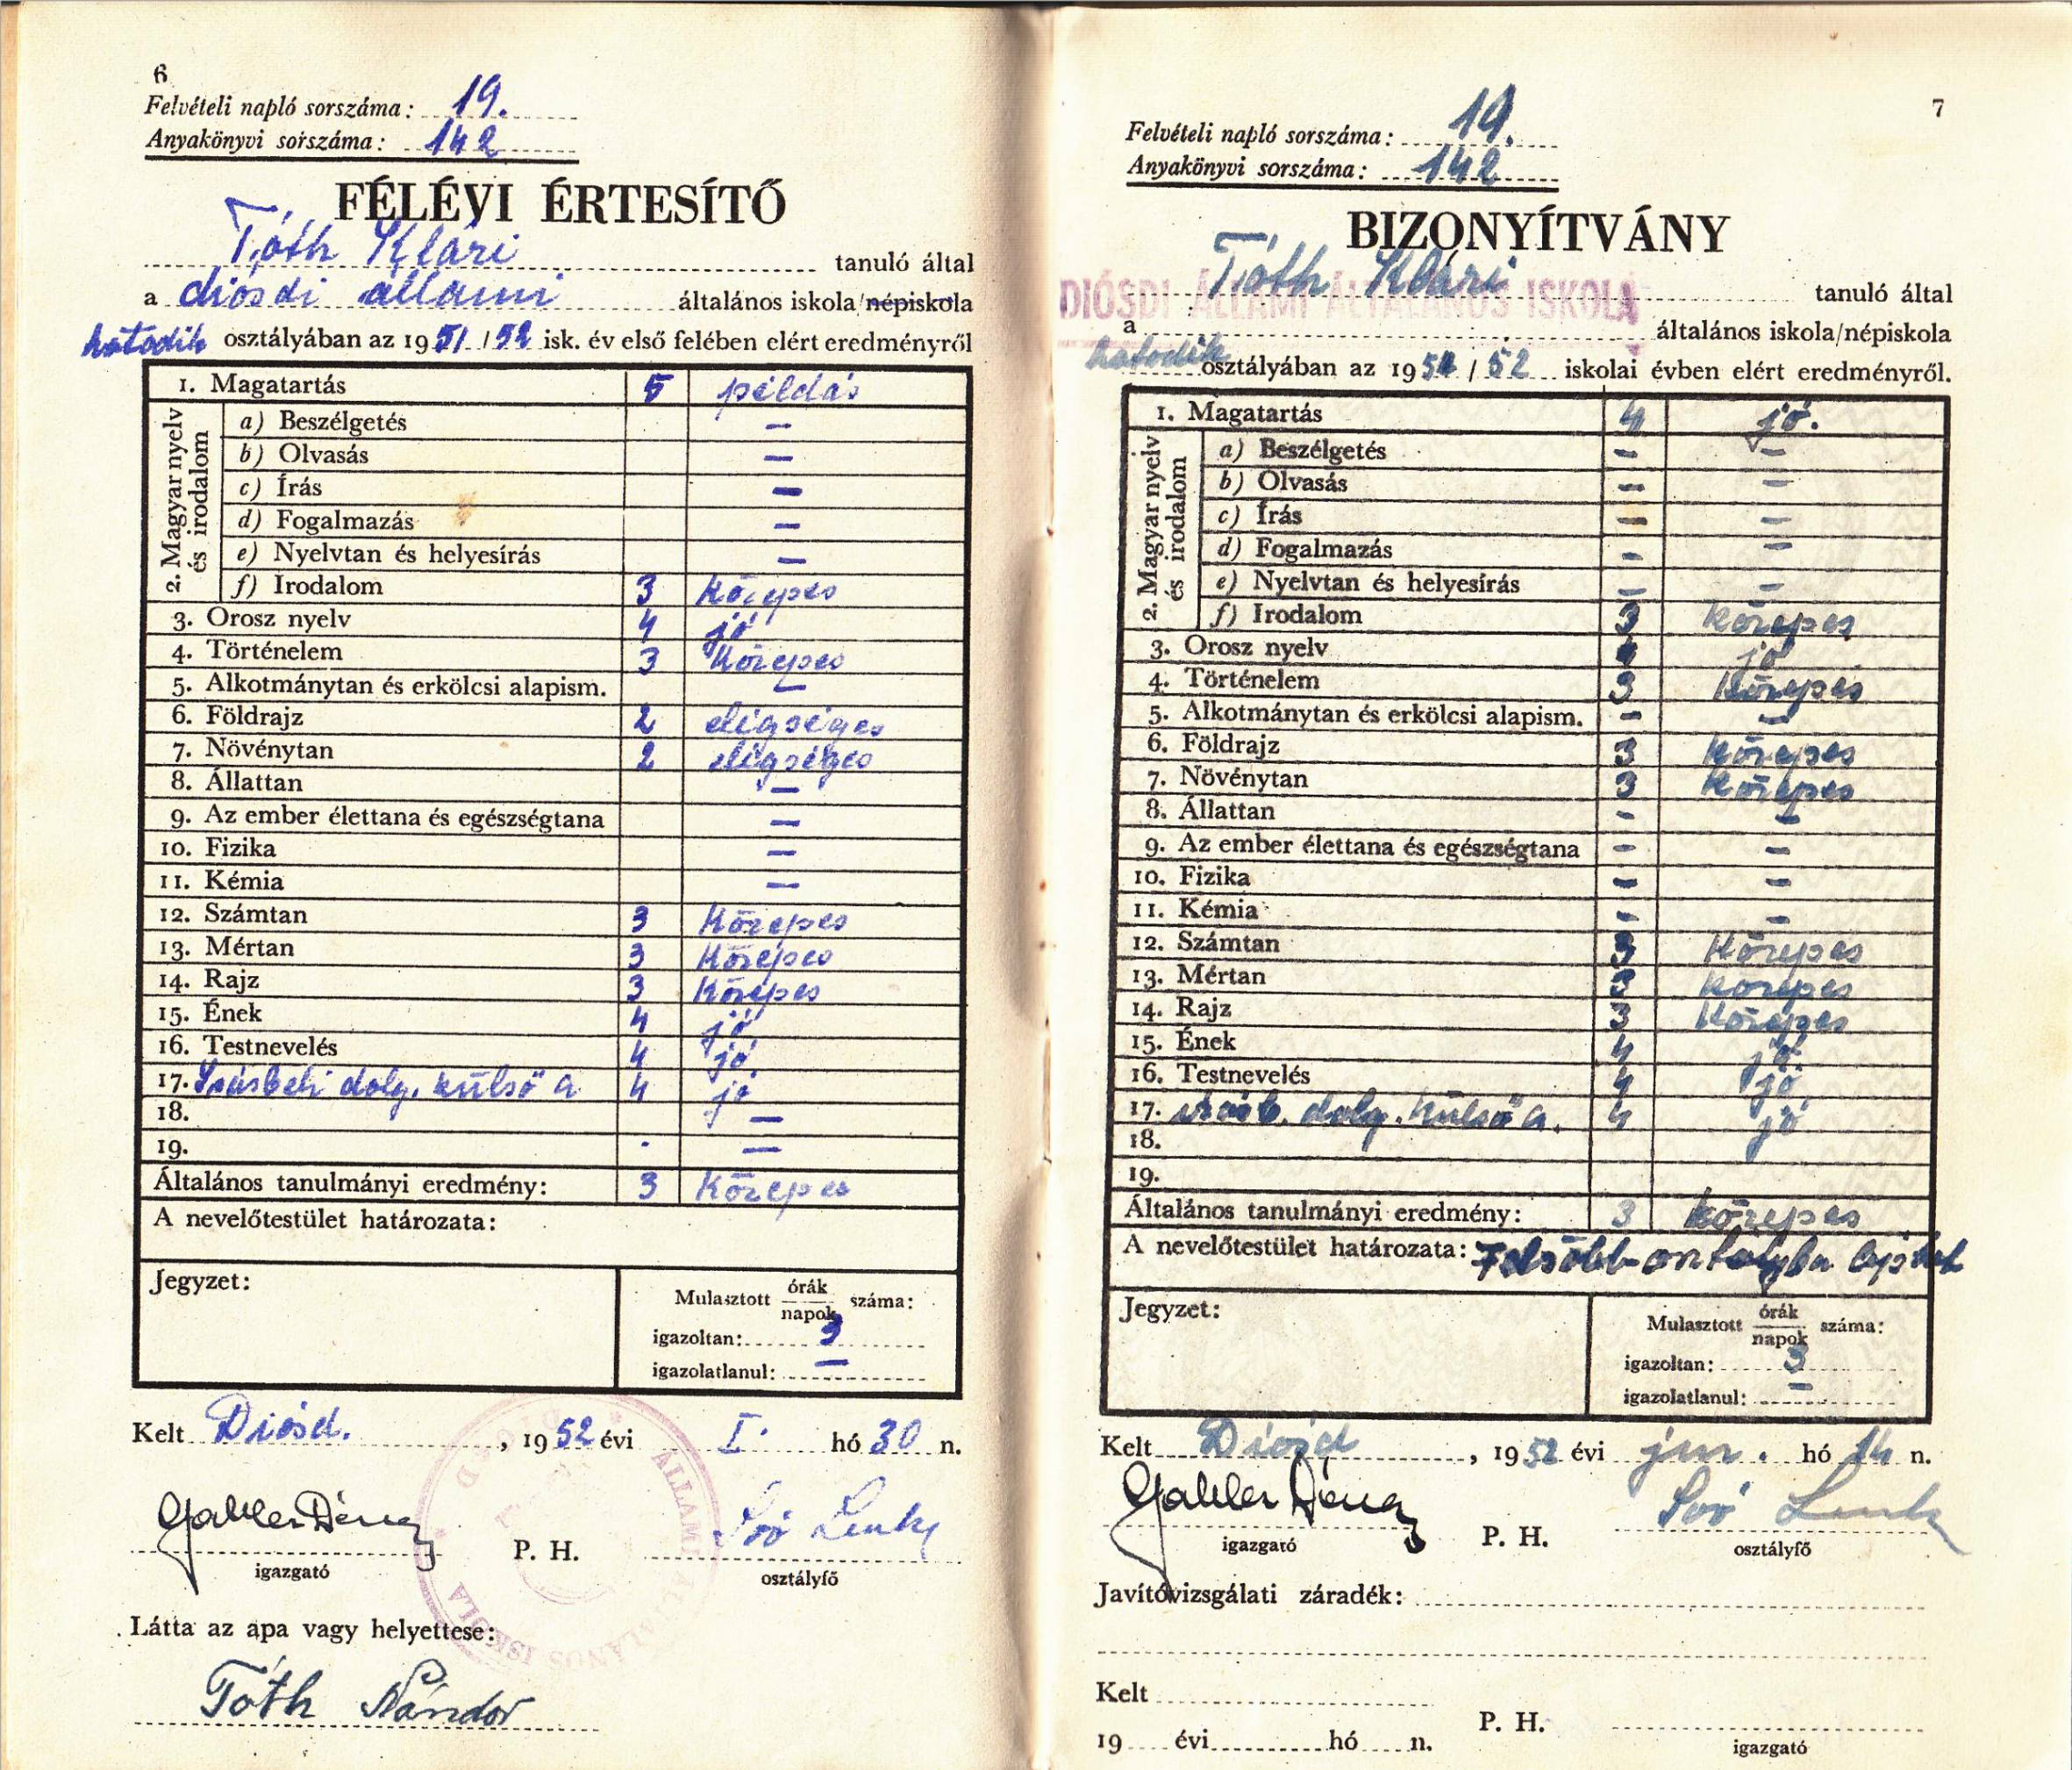 6
Felvételi napló sorszáma: 19.
Anyakönyvi sorszáma: 142
FÉLÉVI ÉRTESÍTŐ
Tóth Klári tanuló által
a diósdi állami általános iskola/népiskola
hatodik osztályában az 1951/52 isk. év első felében elért eredményről
1. Magatartás 5 példás
2. Magyar nyelv és irodalom
a) Beszélgetés —
b) Olvasás —
c) Írás —
d) Fogalmazás —
e) Nyelvtan és helyesírás —
f) Irodalom 3 közepes
3. Orosz nyelv 4 jó
4. Történelem 3 közepes
5. Alkotmánytan és erkölcsi alapism. —
6. Földrajz 2 elégséges
7. Növénytan 2 elégséges
8. Állattan —
9. Az ember élettana és egészségtana —
10. Fizika —
11. Kémia —
12. Számtan 3 közepes
13. Mértan 3 közepes
14. Rajz 3 közepes
15. Ének 4 jó
16. Testnevelés 4 jó
17. Írásbeli dolg. külső a 4 jó
18. —
19. - —
Általános tanulmányi eredmény: 3 közepes
A nevelőtestület határozata:
Jegyzet:
Mulasztott órák/napok száma:
igazoltan: 3
igazolatlanul: —
Kelt Diósd. , 1952 évi I. hó 30 n.
igazgató
P. H.
Soó Lenke
osztályfő
DIÓSD
ÁLLAMI ÁLTALÁNOS ISKOLA
Látta az apa vagy helyettese:
Tóth Nándor
7
Felvételi napló sorszáma: 19.
Anyakönyvi sorszáma: 142
BIZONYÍTVÁNY
Tóth Klári tanuló által
DIÓSDI ÁLLAMI ÁLTALÁNOS ISKOLA
a általános iskola/népiskola
hatodik osztályában az 1951/52 iskolai évben elért eredményről.
1. Magatartás 4 jó.
2. Magyar nyelv és irodalom
a) Beszélgetés — —
b) Olvasás — —
c) Írás — —
d) Fogalmazás — —
e) Nyelvtan és helyesírás — —
f) Irodalom 3 közepes
3. Orosz nyelv 4 jó
4. Történelem 3 közepes
5. Alkotmánytan és erkölcsi alapism. — —
6. Földrajz 3 közepes
7. Növénytan 3 közepes
8. Állattan - —
9. Az ember élettana és egészségtana — —
10. Fizika — —
11. Kémia - —
12. Számtan 3 közepes
13. Mértan 3 közepes
14. Rajz 3 közepes
15. Ének 4 jó
16. Testnevelés 4 jó
17. írásb. dolg. külső a. 4 jó
18.
19.
Általános tanulmányi eredmény: 3 közepes
A nevelőtestület határozata: Felsőbb osztályba léphet
Jegyzet:
Mulasztott órák/napok száma:
igazoltan: 3
igazolatlanul: —
Kelt Diósd , 1952 évi jun. hó 14 n.
igazgató
P. H.
Soó Lenke
osztályfő
Javítóvizsgálati záradék:
Kelt
19 évi hó n.
P. H.
igazgató